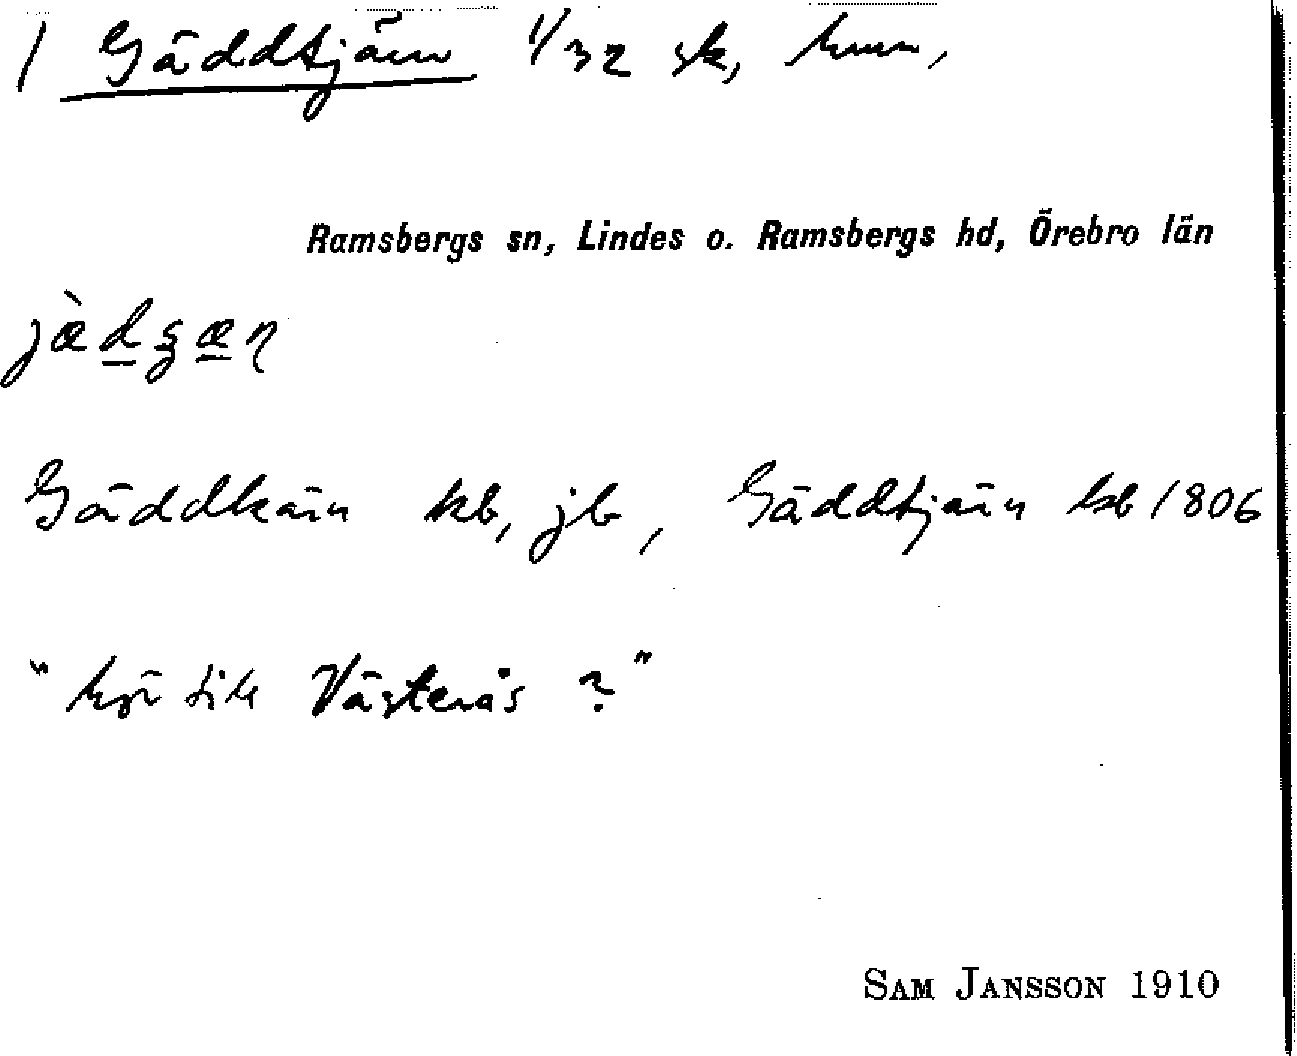 / Gäddtjärn 1/32 sk, hmn,
Ramsbergs sn, Lindes o. Ramsbergs hd, Örebro län
Gäddkärn kb, jb, Gäddtjärn lsb 1806
" hör till Västerås ? "
SAM JANSSON 1910